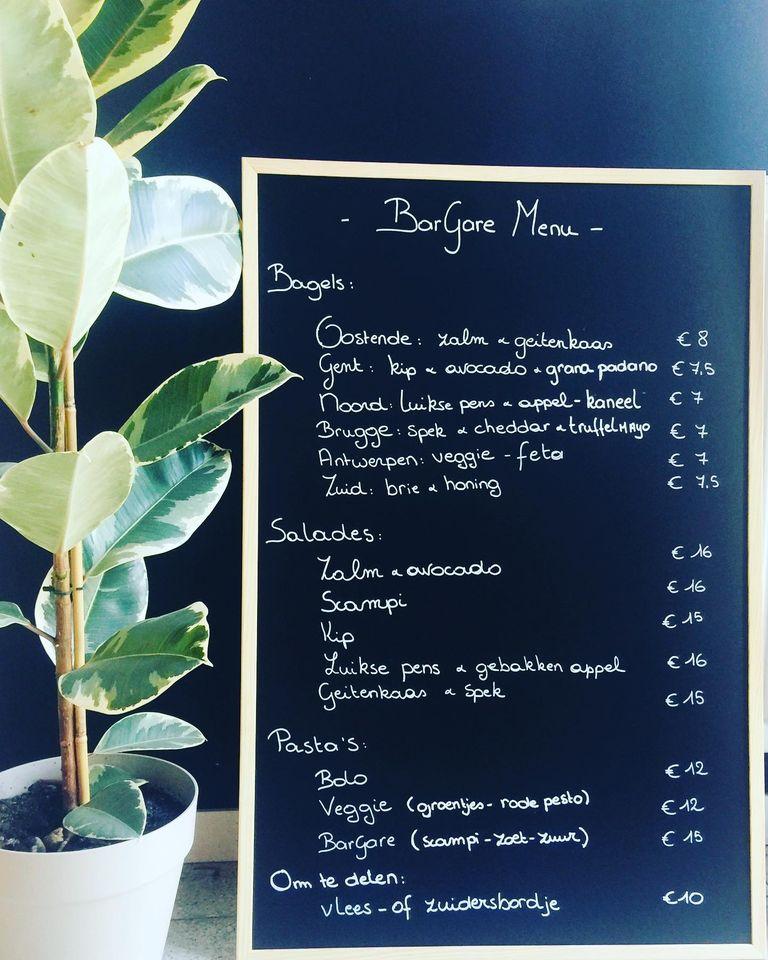 - BarGare Menu -
Bagels:
Oostende: zalm & geitenkaas € 8
Gent: kip & avocado & grana padano € 7,5
Noord: Luikse pens & appel-kaneel € 7
Brugge: spek & cheddar & truffelMAyo € 7
Antwerpen: veggie - feta € 7
Zuid: brie & honing € 7,5
Salades:
Zalm & avocado € 16
Scampi € 16
Kip € 15
Luikse pens & gebakken appel € 16
Geitenkaas & spek € 15
Pasta's:
Bolo € 12
Veggie (groentjes - rode pesto) € 12
BarGare (scampi - zoet - zuur) € 15
Om te delen:
vlees - of zuidersbordje € 10